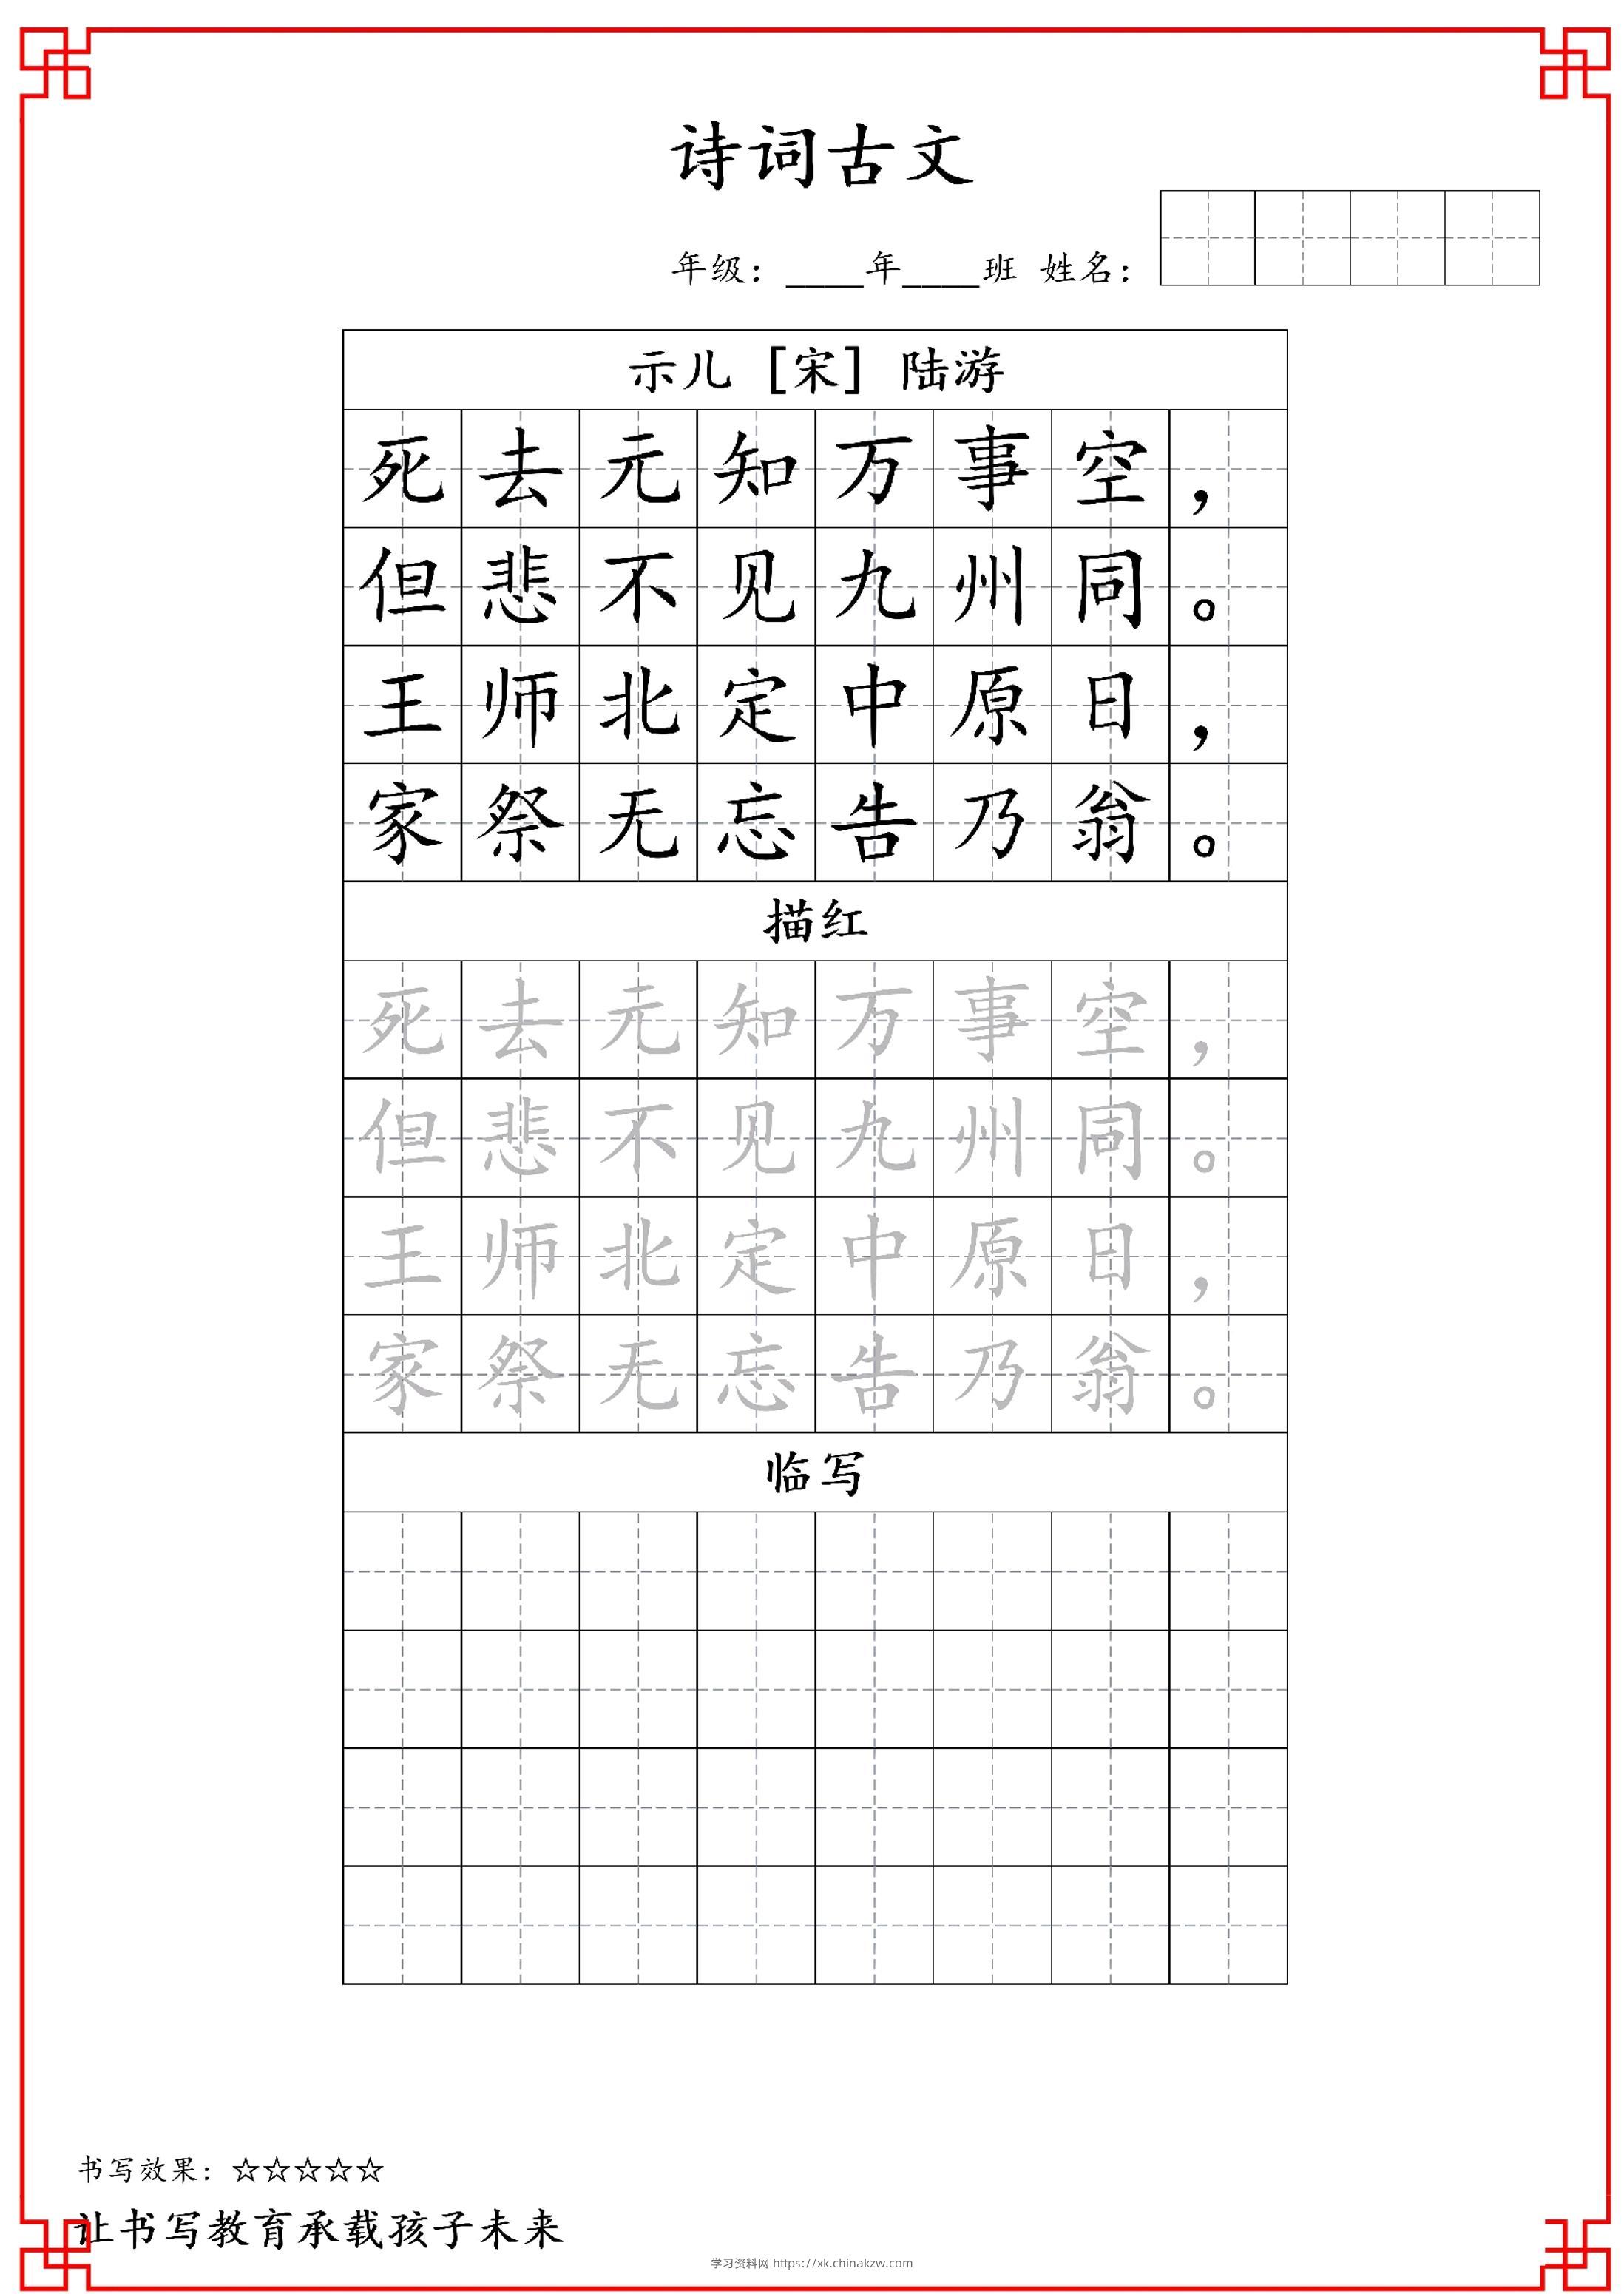 诗词古文
年级：____年____班 姓名：
示儿［宋］陆游
死去元知万事空，
但悲不见九州同。
王师北定中原日，
家祭无忘告乃翁。
描红
死去元知万事空，
但悲不见九州同。
王师北定中原日，
家祭无忘告乃翁。
临写
书写效果：☆☆☆☆☆
让书写教育承载孩子未来
学习资料网 https://xk.chinakzw.com